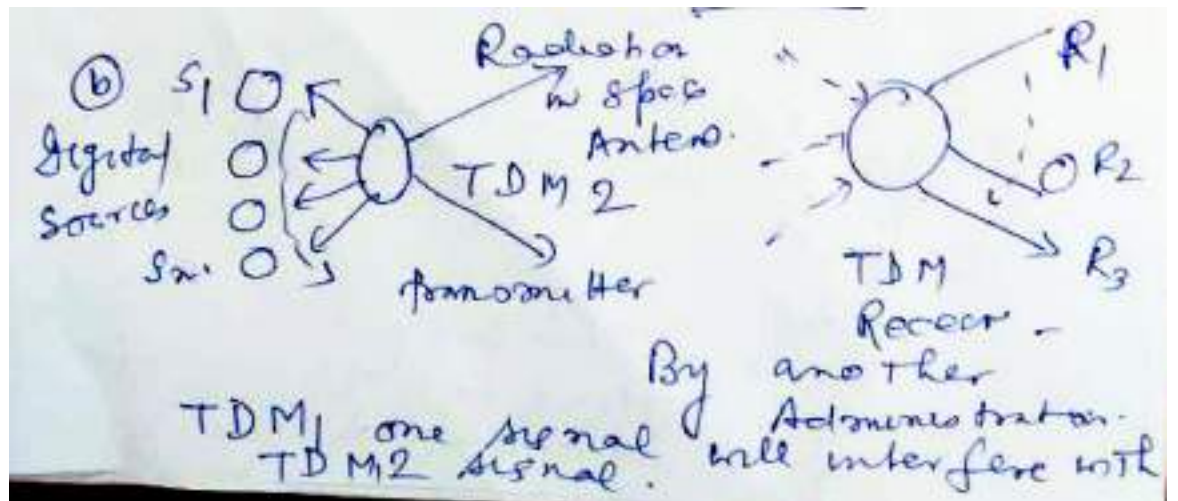 (b) S1
Digital
Sources
Sn.
Radiation
in space
Antena.
TDM 2
transmitter
R1
R2
R3
TDM
Receer -
By another
Administration.
TDM1 one signal will interfere with
TDM2 signal.